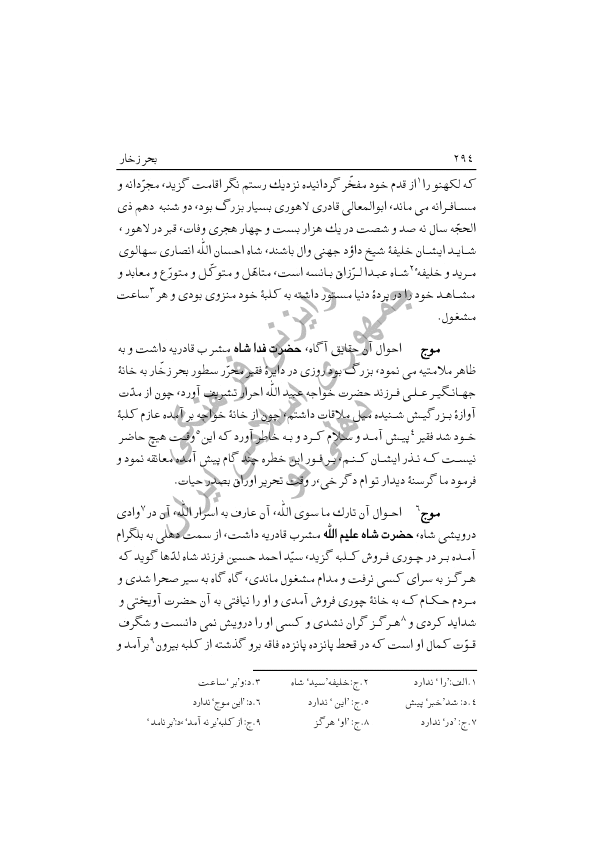 ۲۹٤ بحر زخار
که لکهنو را۱ از قدم خود مفخّر گردانیده نزدیك رستم نگر اقامت گزید، مجرّدانه و
مسافرانه می ماند، ابوالمعالی قادری لاهوری بسیار بزرگ بود، دو شنبه دهم ذی
الحجّه سال نه صد و شصت در یك هزار بست و چهار هجری وفات، قبر در لاهور،
شاید ایشان خلیفهٔ شیخ داؤد جهنی وال باشند، شاه احسان الله انصاری سهالوی
مرید و خلیفه۲ شاه عبدا لرّزاق بانسه است، متاهّل و متوکّل و متورّع و معابد و
مشاهد خود را در پردهٔ دنیا مستور داشته به کلبهٔ خود منزوی بودی و هر۳ ساعت
مشغول.
موج احوال آن حقایق آگاه، حضرت فدا شاه مشرب قادریه داشت و به
ظاهر ملامتیه می نمود، بزرگ بود روزی در دایرهٔ فقیر محرّر سطور بحر زخّار به خانهٔ
جهانگیر علی فرزند حضرت خواجه عبید الله احرار تشریف آورد، چون از مدّت
آوازهٔ بزرگیش شنیده میل ملاقات داشتم، چون از خانهٔ خواجه بر آمده عازم کلبهٔ
خود شد فقیر٤ پیش آمد و سلام کرد و به خاطر آورد که این٥ وقت هیچ حاضر
نیست که نذر ایشان کنم، بر فور این خطره چند گام پیش آمده معانقه نمود و
فرمود ما گرسنهٔ دیدار تو ام دگر خیر، وقت تحریر اوراق بصدر حیات.
موج٦ احوال آن تارك ما سوی الله، آن عارف به اسرار الله، آن در۷ وادی
درویشی شاه، حضرت شاه علیم الله مشرب قادریه داشت، از سمت دهلی به بلگرام
آمده بر در چوری فروش کلبه گزید، سیّد احمد حسین فرزند شاه لدّها گوید که
هرگز به سرای کسی نرفت و مدام مشغول ماندی، گاه گاه به سیر صحرا شدی و
مردم حکام که به خانهٔ چوری فروش آمدی و او را نیافتی به آن حضرت آویختی و
شداید کردی و۸ هرگز گران نشدی و کسی او را درویش نمی دانست و شگرف
قوّت کمال او است که در قحط پانزده پانزده فاقه برو گذشته از کلبه بیرون۹ بر آمد و
۱.الف:'را' ندارد ۲.ج:خلیفه'سید' شاه ۳.د:و'بر'ساعت
٤.د: شد'خبر' پیش ٥.ج:'این' ندارد ٦.د:'این موج'ندارد
۷.ج:'در' ندارد ۸.ج:'او' هرگز ۹.ج:از کلبه'بر نه آمد'،د:'بر نامد'